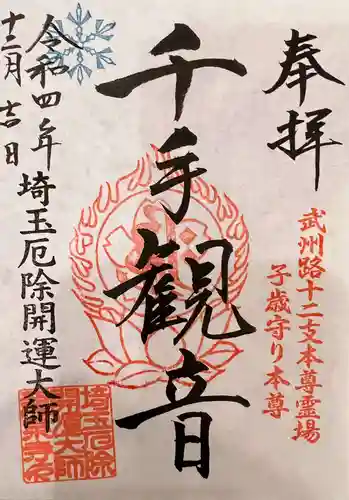 奉拝
武州路十二支本尊霊場
子歳守り本尊
千手観音
埼玉厄除開運大師
令和四年
十二月吉日
埼玉厄除
開運大師